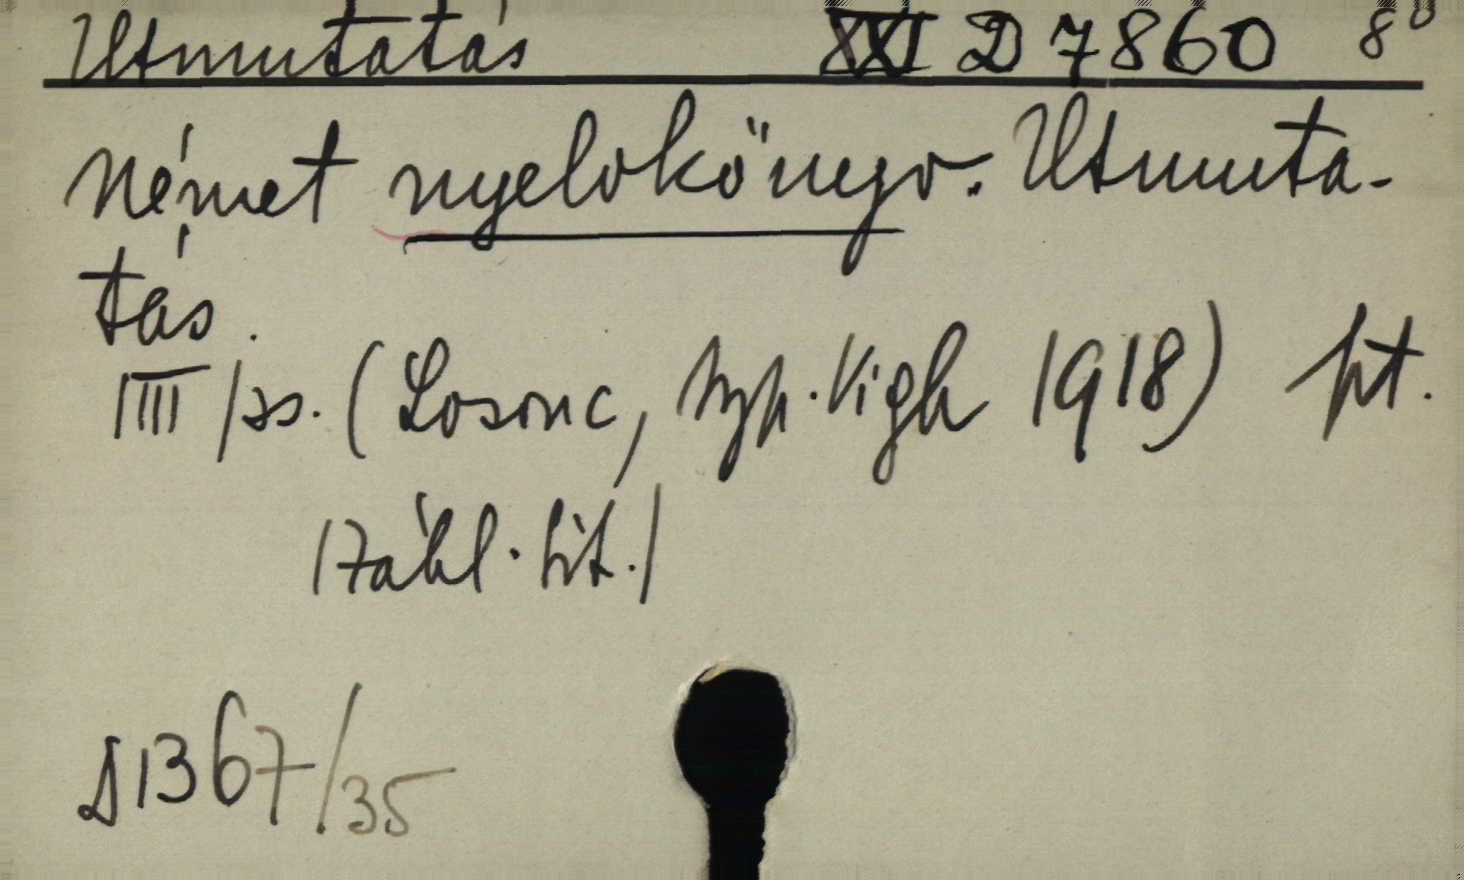 Utmutatás XXI D 7860 8°
Német nyelvkönyv. Utmuta-
tás.
(Losonc, typ. Vigh 1918)
/Zábl. tit./
D1367/35